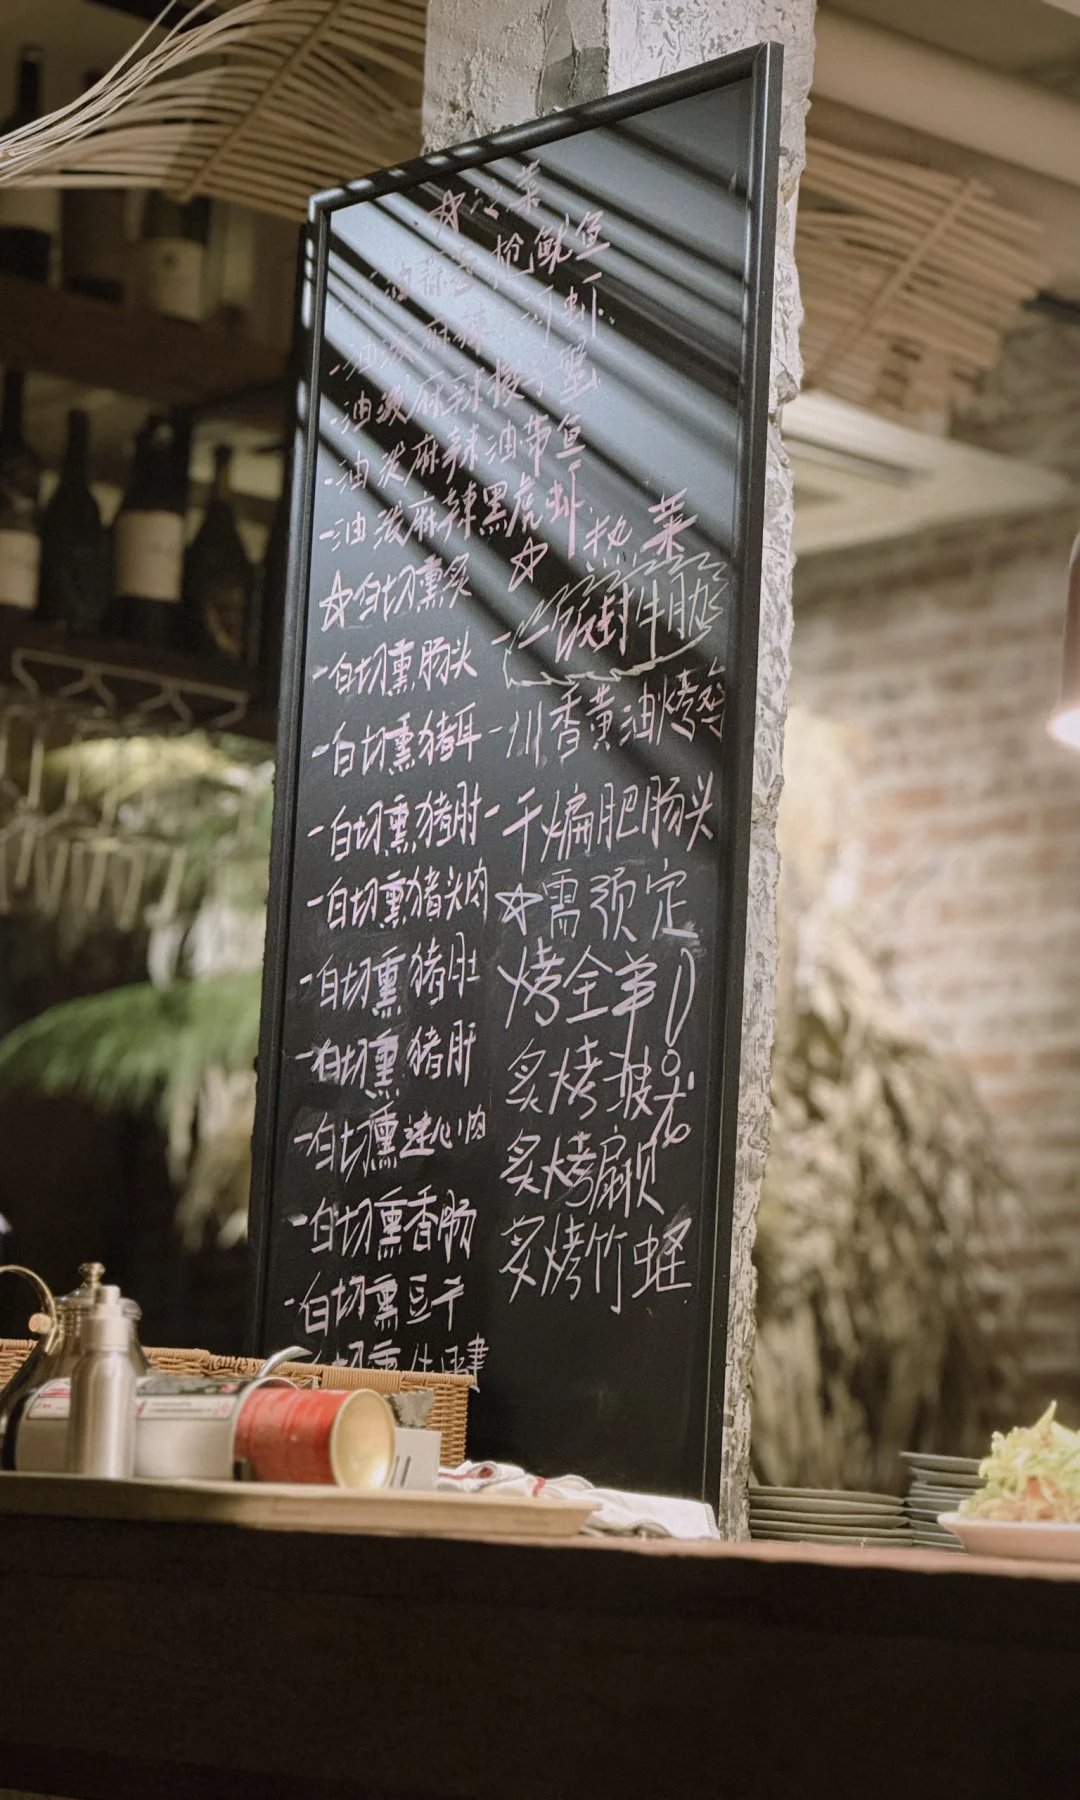 ☆凉菜
油蒜香枪鱿鱼
-油泼麻辣河虾
-油泼麻辣梭子蟹
-油泼麻辣油带鱼
-油泼麻辣黑虎虾
☆白切熏炙
-白切熏肠头
-白切熏猪耳
-白切熏猪肘
-白切熏猪头肉
-白切熏猪肚
-白切熏猪肝
-白切熏连心肉
-白切熏香肠
-白切熏豆干
☆热菜
-饭封牛肋
-川香黄油烤鸡
-干煸肥肠头
☆需预定
烤全羊
炙烤波龙
炙烤扇贝
炙烤竹蛏